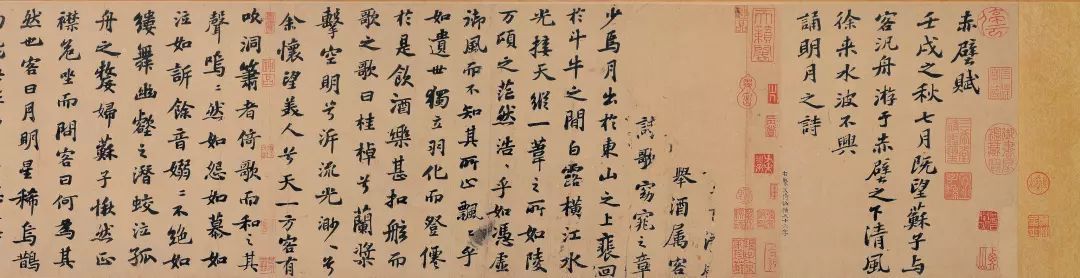 赤壁賦
壬戌之秋七月既望蘇子与
客汎舟游于赤壁之下清風
徐来水波不興
誦明月之詩
舉酒属客
歌窈窕之章
少焉月出於東山之上裴回
於斗牛之間白露横江水
光接天縱一葦之所如陵
万頃之茫然浩々乎如憑虚
御風而不知其所止飄々乎
如遺世獨立羽化而登僊
於是飲酒樂甚扣舷而
歌之歌曰桂棹兮蘭槳
擊空明兮泝流光渺々兮
余懷望美人兮天一方客有
吹洞簫者倚歌而和之其
聲嗚々然如怨如慕如
泣如訴餘音嫋々不絶如
縷舞幽壑之潛蛟泣孤
舟之嫠婦蘇子愀然正
襟危坐而問客曰何為其
然也客曰月明星稀烏鵲